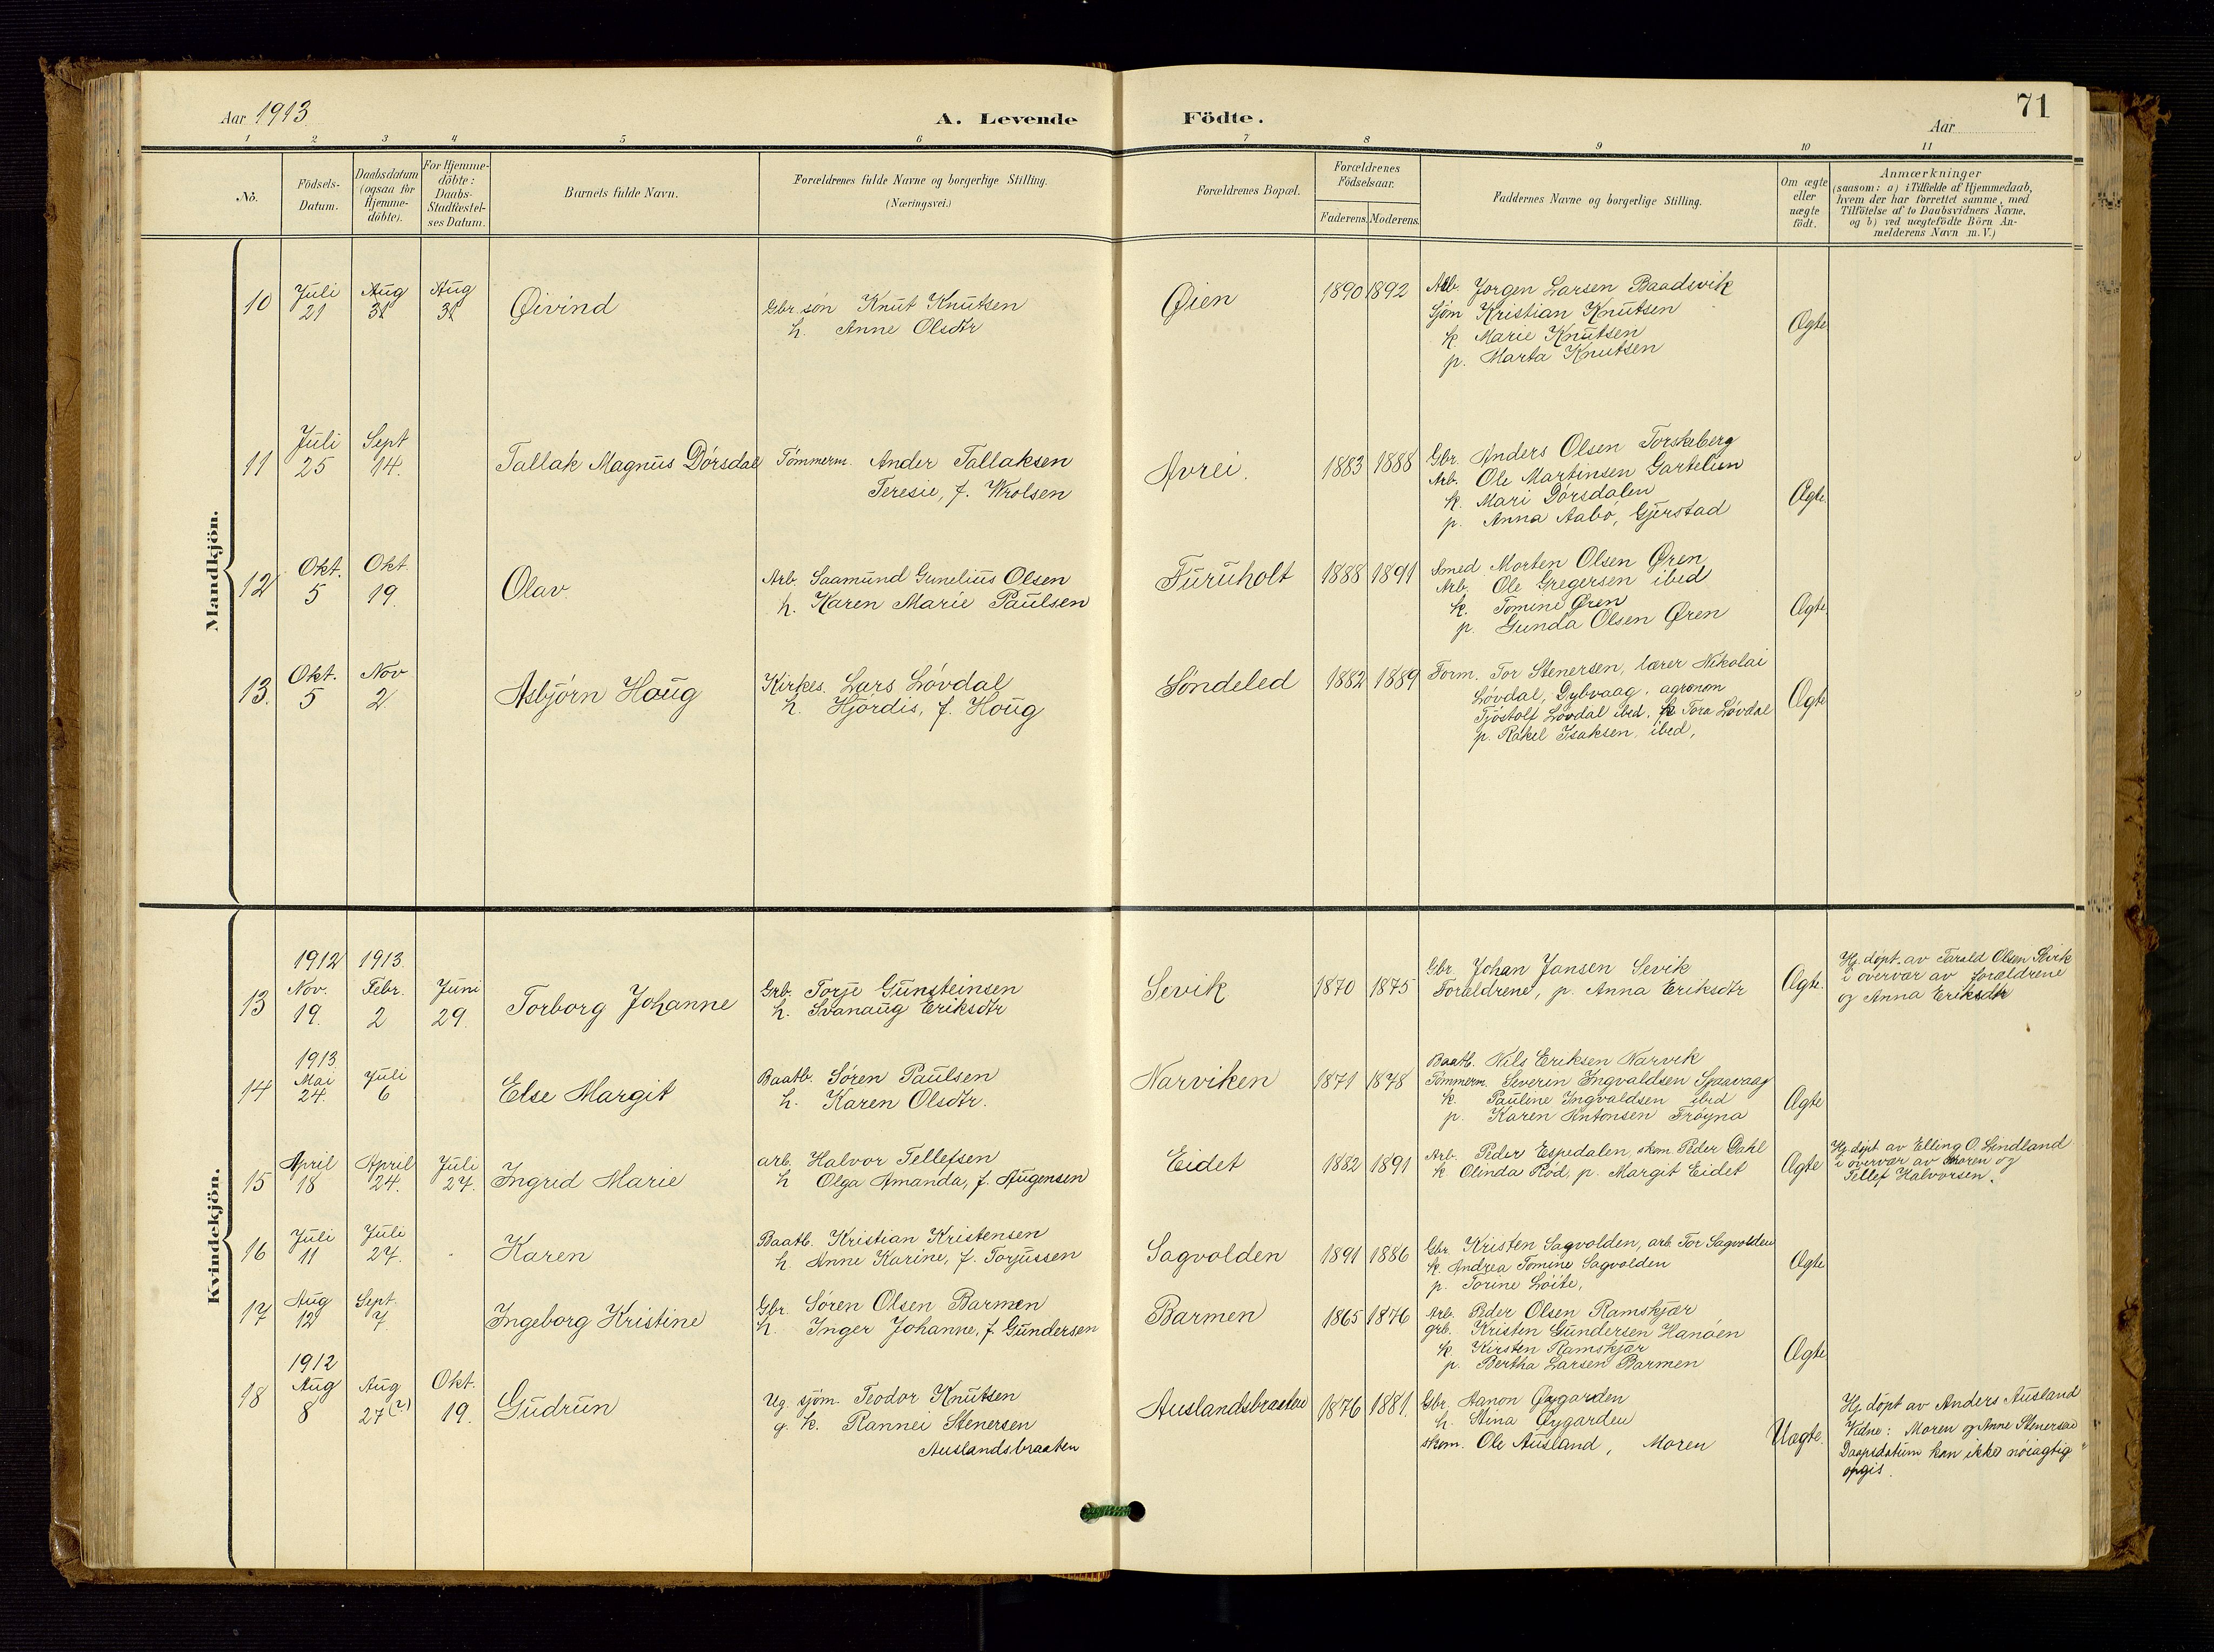 Aar 1913
A. Levende Födte.
Aar
71
1 2 3 4 5 6 7 8 9 10 11
No.
Födsels-
Datum.
Daabsdatum
(ogsaa for
Hjemme-
döbte).
For Hjemme-
döbte:
Daabs-
Stadfæstel-
ses Datum.
Barnets fulde Navn.
Forældrenes fulde Navne og borgerlige Stilling.
(Næringsvei.)
Forældrenes Bopæl.
Forældrenes
Födselsaar.
Faderens. Moderens.
Faddernes Navne og borgerlige Stilling.
Om ægte
eller
uægte
födt.
Anmærkninger
(saasom: a) i Tilfælde af Hjemmedaab,
hvem der har forrettet samme, med
Tilföielse af to Daabsvidners Navne,
og b) ved uægtefödte Börn An-
melderens Navn m. V.)
Mandkjön.
10
Juli
21
Aug
31
Aug
31
Øivind
Gbr. søn Knut Knutsen
h. Anne Olsdtr
Øien
1890 1892
Arb. Jørgen Larsen Baadsvik
Sjøm Kristian Knutsen
k. Marie Knutsen
p. Marta Knutsen
Ægte
11
Juli
25
Sept
14.
Tallak Magnus Dørsdal
Tømmerm. Ander Tallaksen
Teresie, f. Wrolsen
Avrei.
1883 1888
Gbr. Anders Olsen Torskeberg
Arb. Ole Martinsen Gartelien
k. Mari Dørsdalen
p. Anna Aabø, Gjerstad
Ægte.
12
Okt.
5
Okt.
19.
Olav.
Arb. Saamund Gunelius Olsen
h. Karen Marie Paulsen
Furuholt
1888 1891
Smed Morten Olsen Øren
Arb. Ole Gregersen ibid
k. Tomine Øren
p. Gunda Olsen Øren
Ægte
13.
Okt.
5
Nov
2
Asbjørn Houg
Kirkes. Lars Løvdal
h. Hjørdis, f. Houg
Søndeled
1882 1889
Form. Tor Stenersen, lærer Nikolai
Løvdal, Dybvaag, agronom
Tjøstolf Løvdal ibid. k Tora Løvdal
p. Rakel Isaksen, ibid,
Ægte
Kvindekjön.
13
1912
Nov.
19.
1913.
Febr.
2
Juni
29.
Torborg Johanne
Grb. Torje Gunsteinsen
h. Svanaug Eriksdtr
Sevik
1870 1875
Gbr. Johan Jansen Sevik
Forældrene, p. Anna Eriksdtr
Ægte.
Hj. døpt. av Tarald Olsen Sevik
i overvær av forældrene
og Anna Eriksdtr
14
1913
Mai
24.
Juli
6
Else Margit
Baatb. Søren Paulsen
h. Karen Olsdtr.
Narviken
1871 1878
Baatb. Nils Eriksen Narvik
Tømmerm. Severin Ingvaldsen Spaavaag
k. Pauline Ingvaldsen ibid
p. Karen Antonsen Trøyna
Ægte
15
April
18
April
24.
Juli
27.
Ingrid Marie
arb. Halvor Tellefsen
h Olga Amanda, f. Augensen
Eidet
1882 1891
Arb. Peder Espedalen, skom. Peder Dahl
k Olinda Rød, p. Margit Eidet
Ægte
Hj. døpt av Elling O. Lindland
i overvær av Moren og
Tellef Halvorsen.
16
Juli
11
Juli
27.
Karen
Baatb. Kristian Kristensen
h. Anne Karine, f. Torjussen
Sagvolden
1891 1886
Gbr. Kristen Sagvolden, arb. Tor Sagvolden
k. Andrea Tomine Sagvolden
p. Torine Løite,
Ægte
17
Aug
12
Sept.
7
Ingeborg Kristine
Gbr. Søren Olsen Barmen
h. Inger Johanne, f. Gundersen
Barmen
1865 1876
Arb. Peder Olsen Ramskjær
grb. Kristen Gundersen Hanøen
k. Kirsten Ramskjær
p. Bertha Larsen Barmen
Ægte
18
1912
Aug
8
Aug
27(?)
Okt.
19.
Gudrun
Ug. sjøm. Teodor Knutsen
g. k. Rannei Stenersen
Auslandsbraaten
Auslandsbraaten
1876 1881.
Gbr. Hanon Øygarden
h. Stina Øygarden
skom. Ole Ausland, Moren
Uægte.
Hj. døpt av Anders Ausland
Vidne: Moren og Anne Stenersen
Daapsdatum kan ikke nøiagtig
opgis.